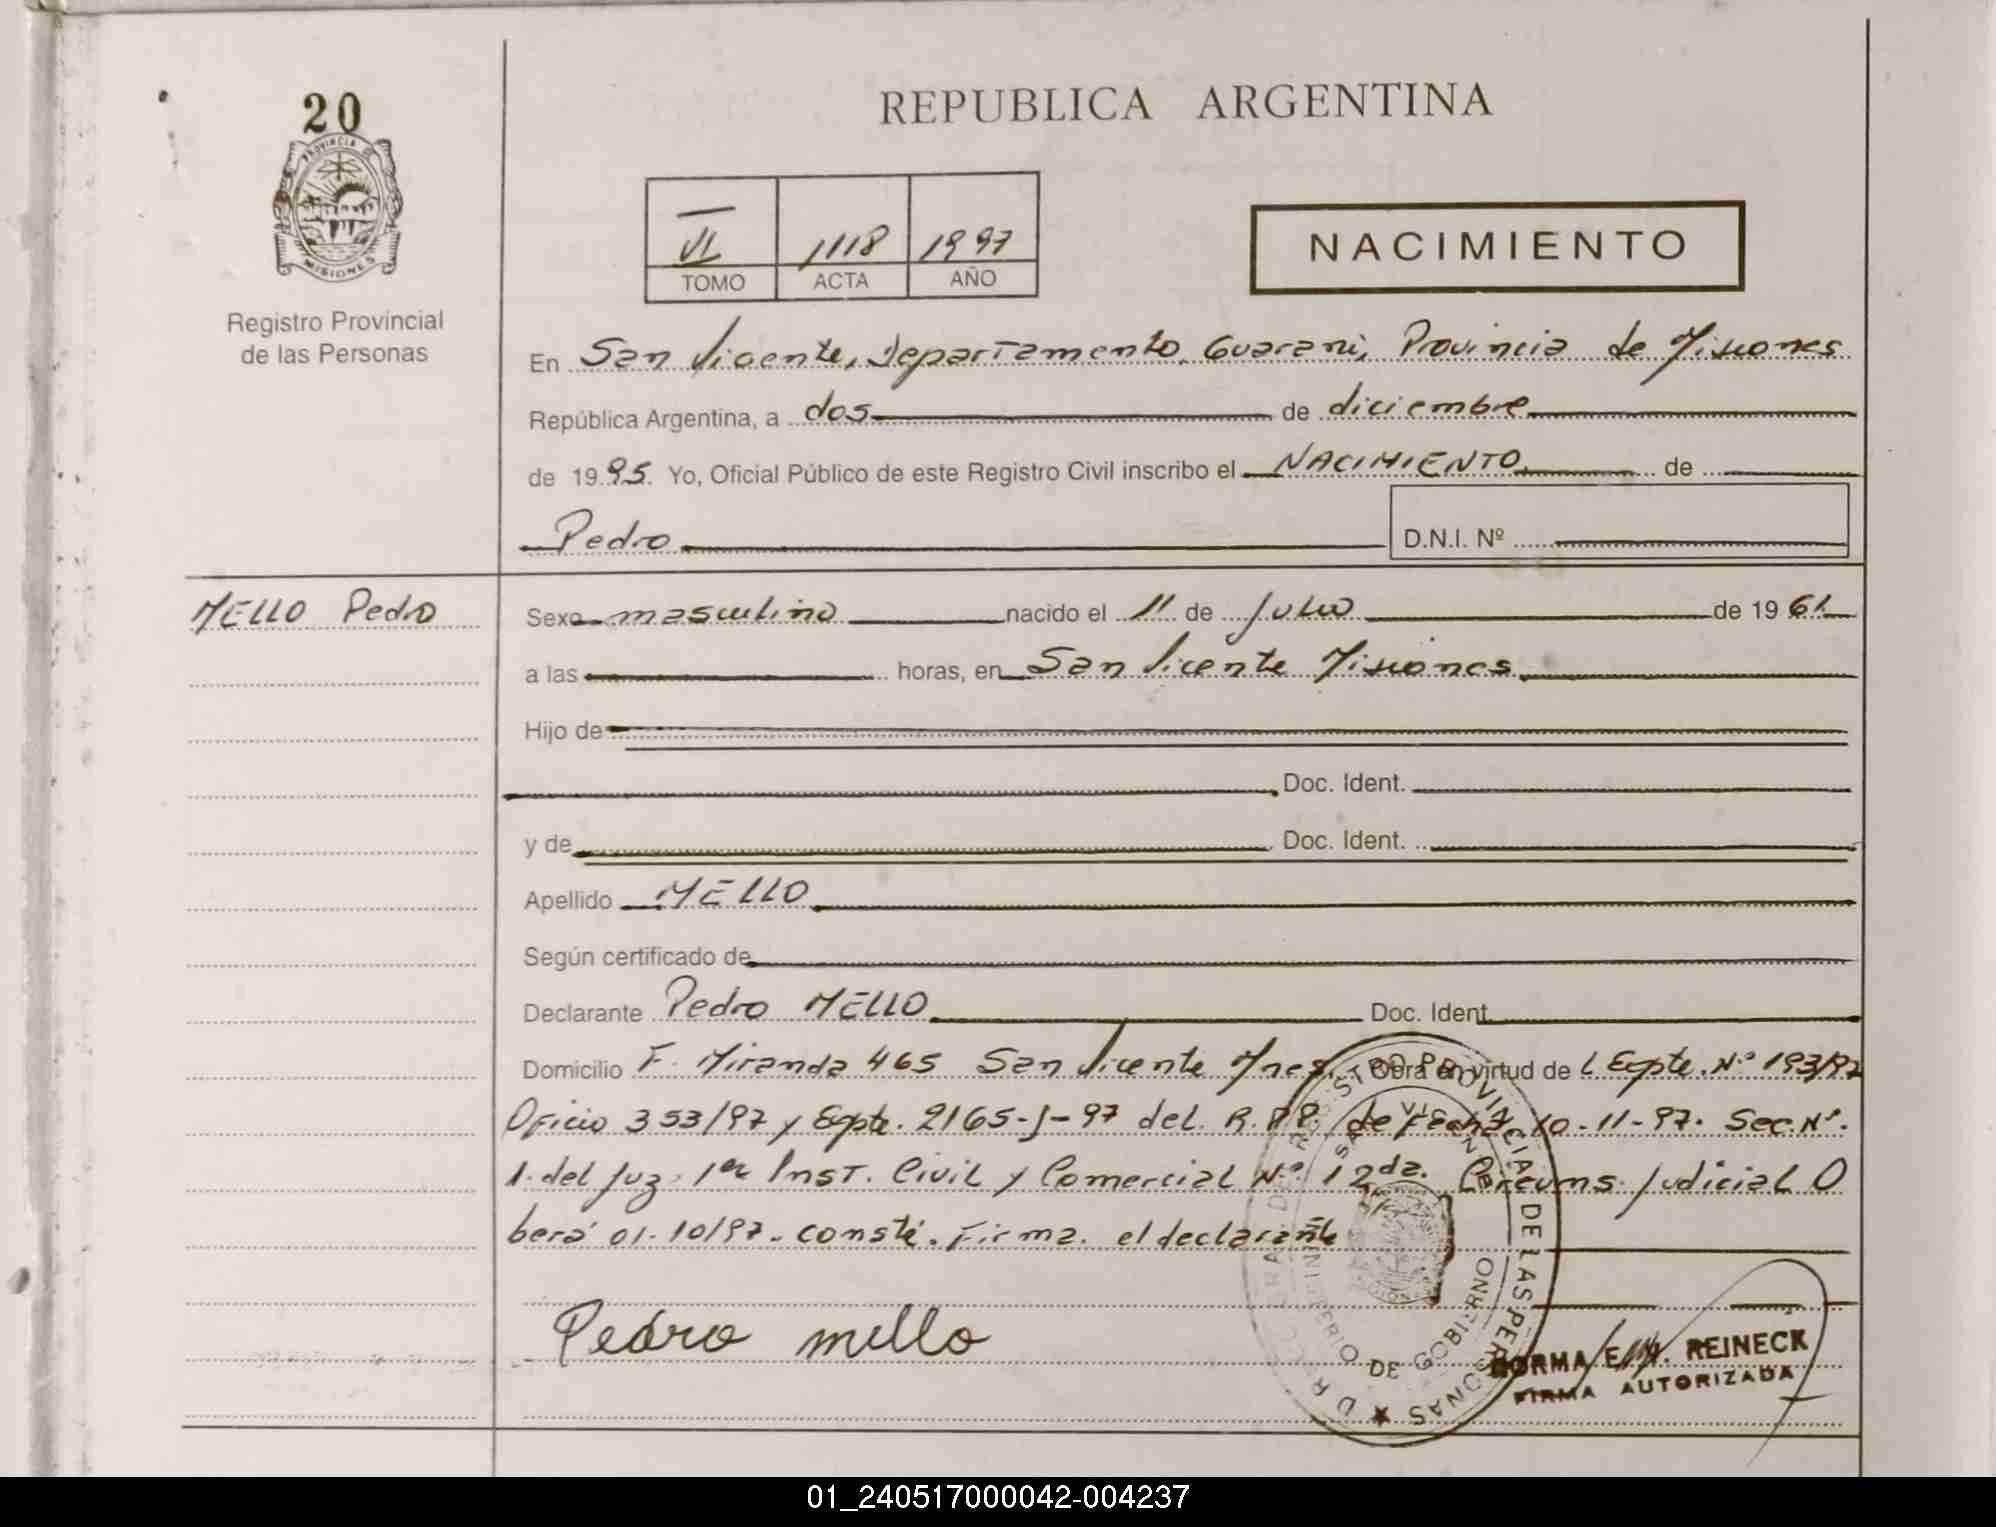 20
PROVINCIA DE
MISIONES
Registro Provincial
de las Personas
REPUBLICA ARGENTINA
VI 1118 1997
TOMO ACTA AÑO
NACIMIENTO
En San Vicente, Departamento Guaraní, Provincia de Misiones
República Argentina, a dos de diciembre
de 1995. Yo, Oficial Público de este Registro Civil inscribo el NACIMIENTO de
Pedro D.N.I. Nº
MELLO Pedro
Sexo masculino nacido el 11 de Julio de 1961
a las horas, en San Vicente Misiones
Hijo de
Doc. Ident.
y de Doc. Ident.
Apellido MELLO
Según certificado de
Declarante Pedro MELLO Doc. Ident.
Domicilio F. Miranda 465 San Vicente Mnes. Obra en virtud de l Expte. Nº 193/97
Oficio 353/97 y Expte. 2165-J-97 del R.P.P. de Fecha 10-11-97. Sec. Nº.
1. del Juz. 1er Inst. Civil y Comercial Nº 1 2da. Circuns. Judicial O
berá 01-10/97. conste. Firma el declarante
Pedro mello
REGISTRO PROVINCIAL DE LAS PERSONAS
SAN VICENTE
MINISTERIO DE GOBIERNO
NORMA E. REINECK
FIRMA AUTORIZADA
01_240517000042-004237